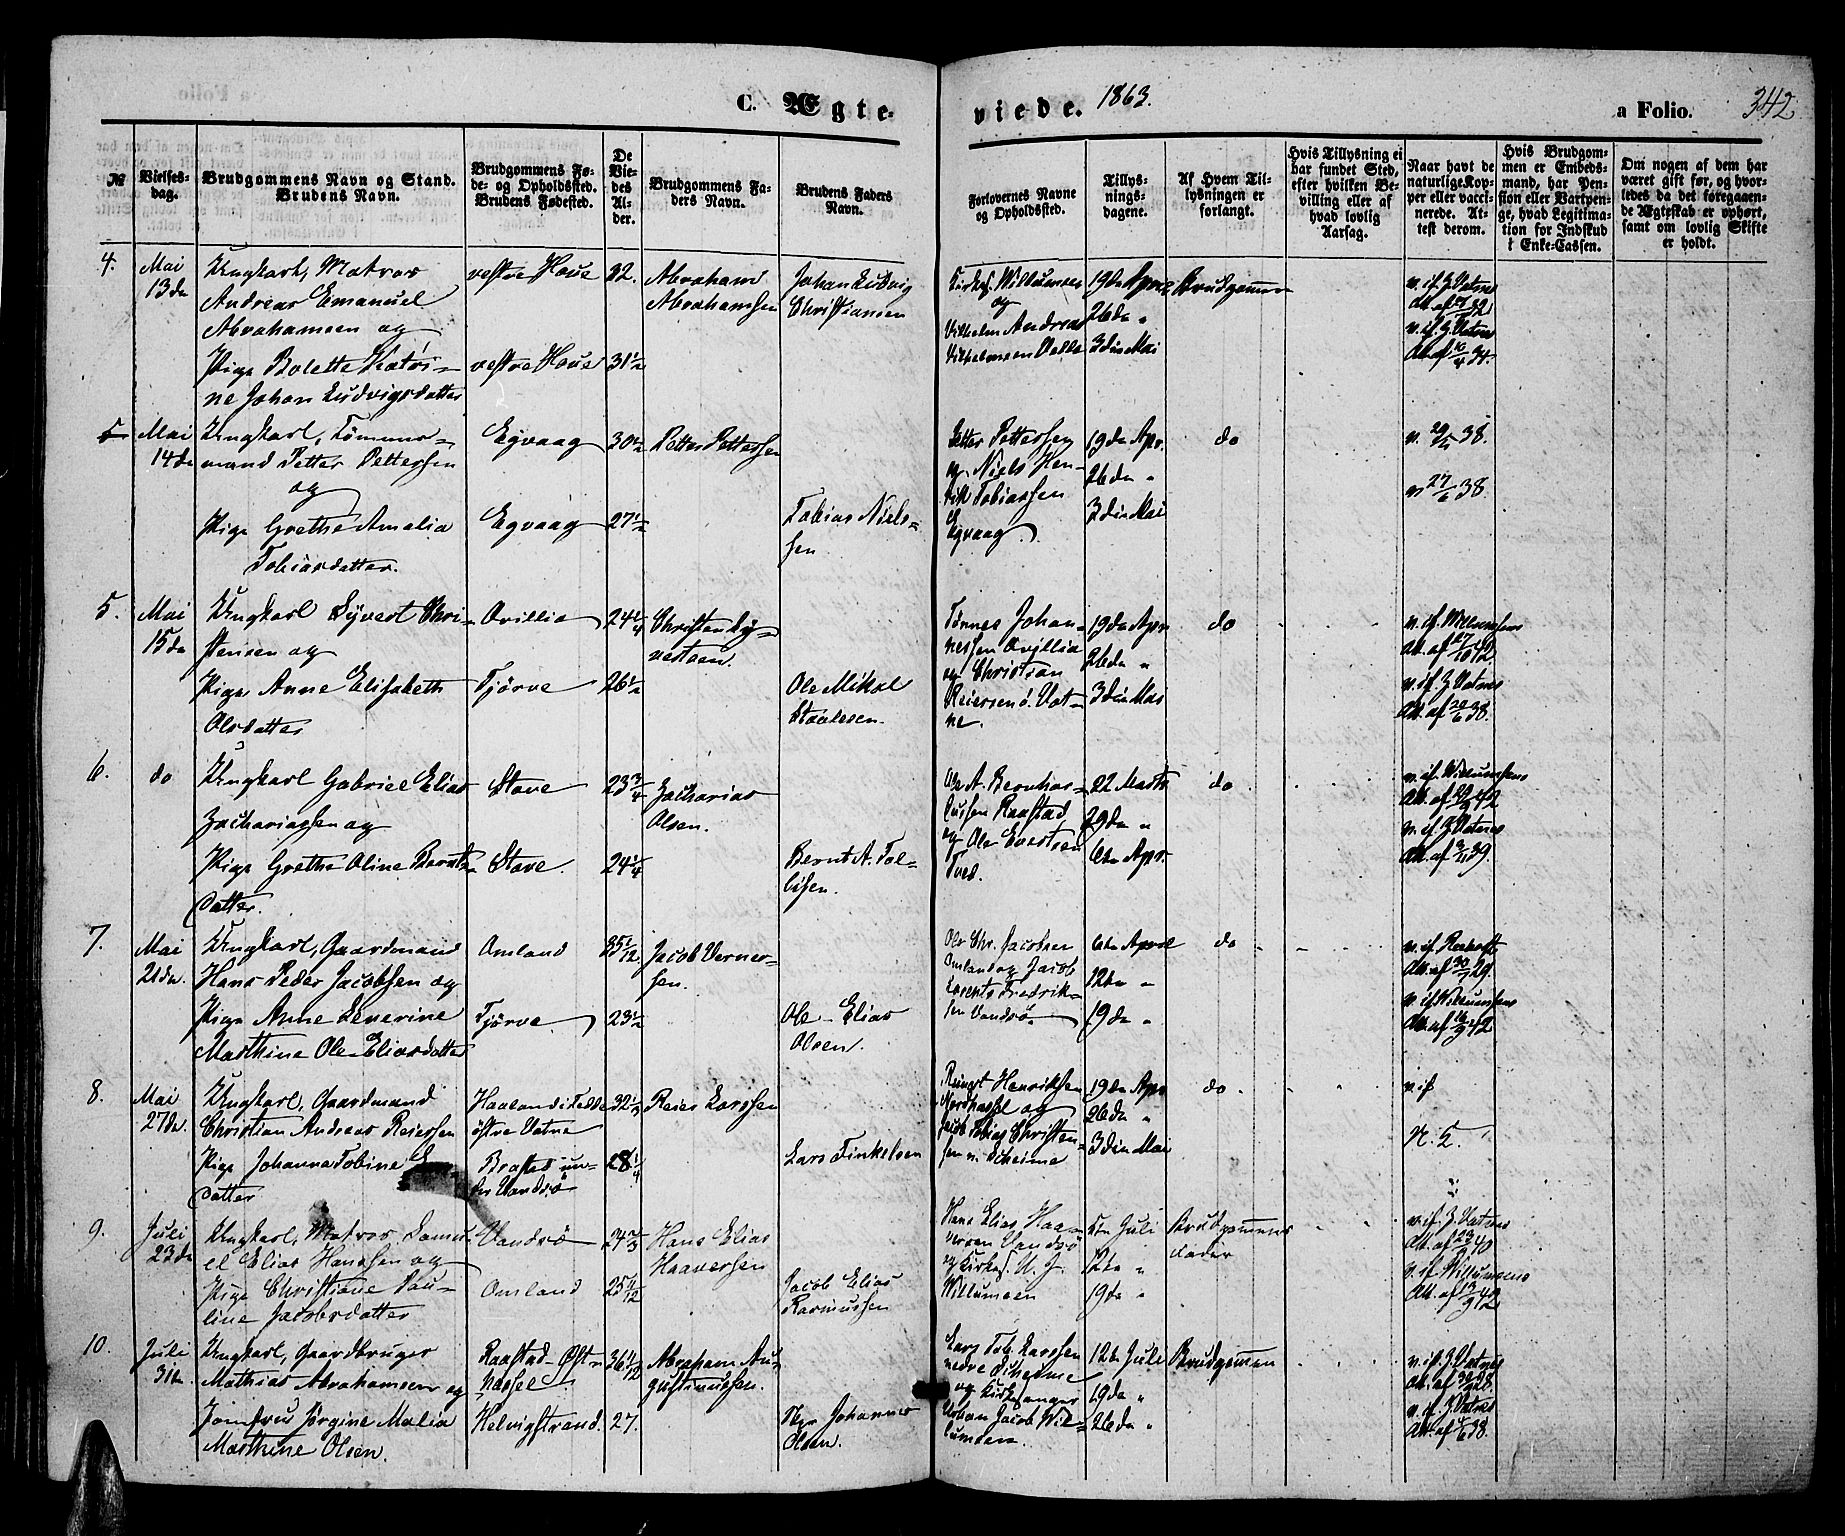 C. Ægte-
viede. 1863.
a Folio. 342
№
Vielses-
dag.
Brudgommens Navn og Stand.
Brudens Navn.
Brudgommens Fø-
de- og Opholdssted.
Brudens Fødested.
De
Vie-
des
Al-
der.
Brudgommens Fa-
ders Navn.
Brudens Faders
Navn.
Forlovernes Navne
og Opholdssted.
Tillys-
nings-
dagene.
Af Hvem Til-
lysningen er
forlangt.
Hvis Tillysning ei
har fundet Sted,
efter hvilken Be-
villing eller af
hvad lovlig
Aarsag.
Naar havt de
naturlige Kop-
per eller vacci-
nerede. At-
test derom.
Hvis Brudgom-
men er Embeds-
mand, har Pen-
sion eller Vartpen-
ge, hvad Legitima-
tion for Indskud
i Enke-Cassen.
Om nogen af dem har
været gift før, og hvor-
ledes da det foregaaen-
de Ægteskab er ophørt,
samt om lovlig Skifte
er holdt.
4.
Mai
13de
Ungkarl, Matros
Andreas Emanuel
Abrahamsen og
Pige Bolette Katri-
ne Johan Ludvigsdatter
vestre Houe
vestre Houe
32.
31 1/2
Abraham
Abrahamsen
Johan Ludvig
Christiansen
Kirkes. Willumsen
og
Vilhelm Andreas
Vilhelmsen
19de April
26de "
3die Mai
Brudgommen
v. if. J. Vatnes
Att. af
v. if. J. Vatnes
Att. af 16/4 34.
5
Mai
14de
Ungkarl, Tømmer-
mand Petter Pettersen
og
Pige Grethe Amalia
Tobiasdatter.
Egvaag
Egvaag
30 1/2
27 1/2
Petter Pettersen
Tobias Niels-
sen
Petter Pettersen
og Niels Hen-
rik Tobiassen
Egvaag
19de Apr.
26de "
3die Mai
do
v. 29/5 38.
v 27/6 38.
5.
Mai
15de
Ungkarl Syvert Chri-
stensen og
Pige Anne Elisabeth
Olsdatter
Ovillia
Tjörve
24 1/4
26 1/2
Christen Sy-
vertsen.
Ole Mikal
Staalesen.
Tørnes Johan-
nessen Ovillia
og Christian
Reiersen ö. Vat-
ne.
19de Apr
26de "
3die Mai
do
v. if. Willumsens
Att. af 27/10 42
v. if. J. Vatnes
Att. af 38.
6.
do
Ungkarl Gabriel Elias
Zachariassen og
Pige Grethe Oline Bernts-
datter.
Stave
Stave.
23 3/4
24 1/4
Zacharias
Olsen.
Bernt A. Tol-
lisen.
Ole A. Bernhar-
dussen Raastad
og Ole Evertsen
Tved.
22 Marts
29de "
6te Apr.
do
v. if. Willumsens
Att. af 42
v. if. J. Vatnes
Att. af 39.
7.
Mai
21de
Ungkarl, Gaardmand
Hans Peder Jacobsen og
Pige Anne Severine
Marthine Ole-Eliasdatter
Omland
Tjörve
35 1/12
23 1/2
Jacob Verner-
sen.
Ole-Elias
Olsen.
Ole Chr. Jacobsen
Omland og Jacob
Lorents Fredrik-
sen Vandsö.
6te April
12te "
19de "
do
v. if.
Att. af 30/7 29.
v. if. Willumsens
Att. af 42
8.
Mai
27de
Ungkarl, Gaardmand
Christian Andreas Reiersen
Pige Johanna Tobine
datter
Haaland i Fedde
östre Vatne
Brastad un-
der Vandsö
32 1/2
28 1/4
Reier Larssen
Lars Finkelsen
Henriksen
Nordhassel og
Jacob Tobias Christen-
sen n. Skeime
19de Apr
26de "
3die Mai
do
v. if
9.
Juli
23de
Ungkarl, Matros Samu-
el Elias Hanssen og
Pige Christiane Pau-
line Jacobsdatter
Vandsö
Omland
24 2/3
25 11/12
Hans Elias
Haaversen
Jacob Elias
Rasmussen
Hans Elias Haa-
versen Vandsö
og Kirkes. U. J.
Willumsen
5te Juli
12te "
19de "
Brudgommens
Fader
v. if. J. Vatnes
Att. af 40
v. if. Willumsens
Att. af 42
10.
Juli
31te
Ungkarl, Gaardbruger
Mathias Abrahamsen og
Jomfru Jörgine Malia
Marthine Olsen.
Raastad-Øst-
hassel.
Helvigstrand.
36
27.
Abraham Au-
gustinussen.
Johannes
Olsen.
Lars Tob. Larssen
nedre Skeime
og Kirkesanger
Urban Jacob Wil-
lumsen.
12te Juli
19de "
26de "
Brudgommen
v. if. J. Vatnes
Att. af 28.
v. if. J. Vatnes
Att. af 38.